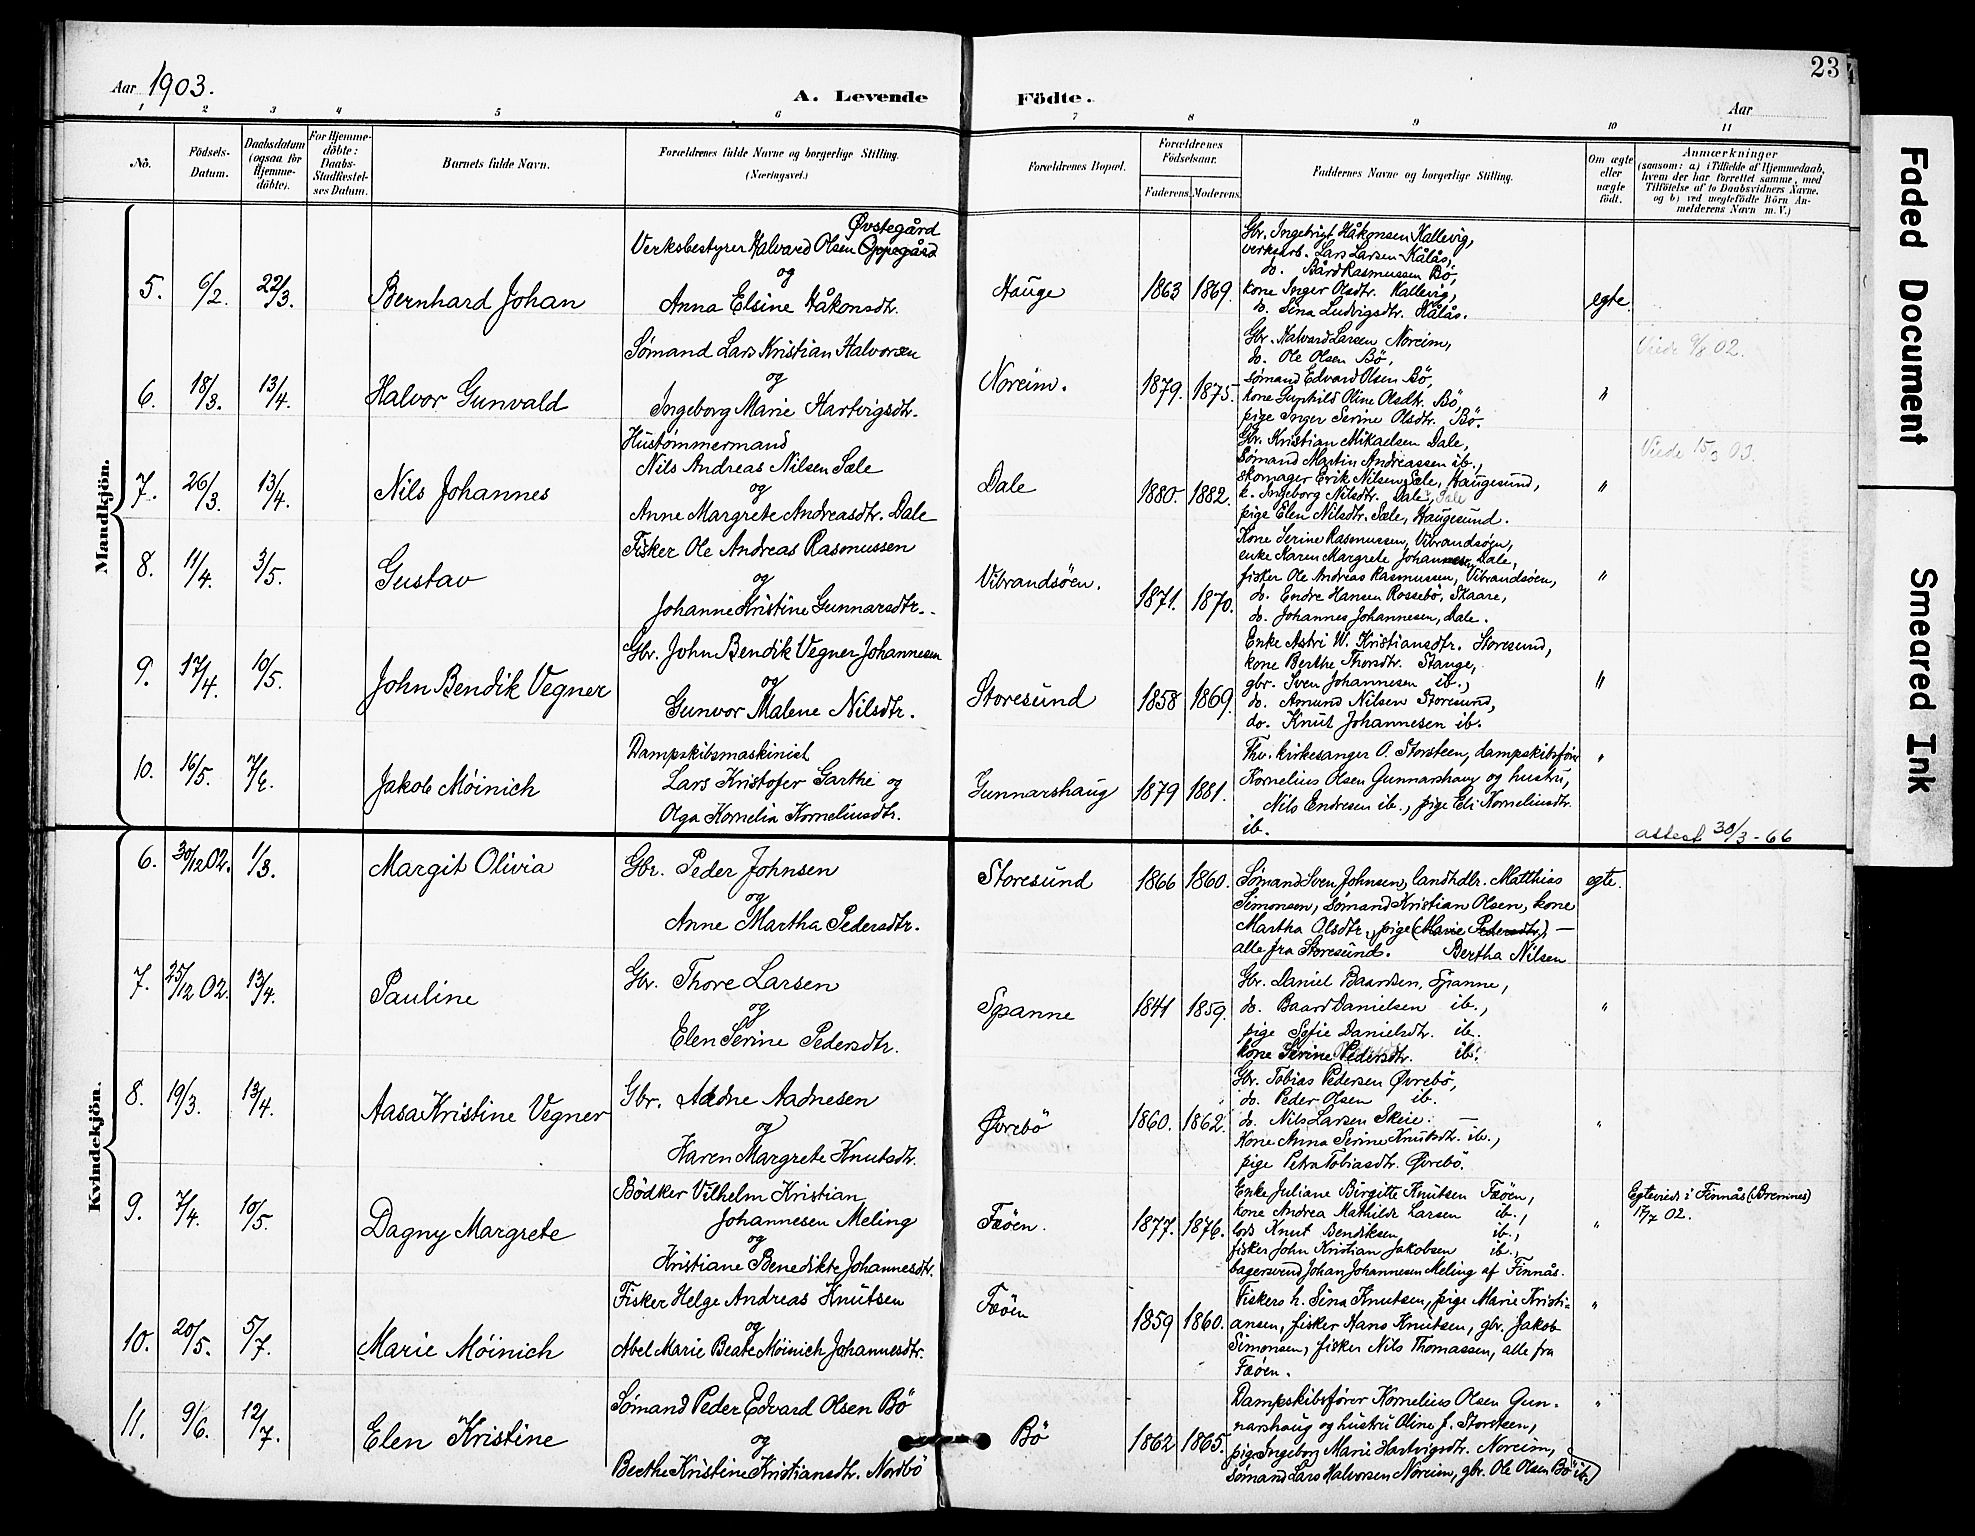 Aar 1903.
A. Levende
Födte.
Aar
23
1 2 3 4 5 6 7 8 9 10 11
No.
Födsels-
Datum.
Daabsdatum
(ogsaa for
Hjemme-
döbte).
For Hjemme-
döbte:
Daabs-
Stadfæstel-
ses Datum.
Barnets fulde Navn.
Forældrenes fulde Navne og borgerlige Stilling.
(Næringsvei.)
Forældrenes Bopæl.
Forældrenes
Födselsaar.
Faderens. Moderens.
Faddernes Navne og borgerlige Stilling.
Om ægte
eller
uægte
födt.
Anmærkninger
(saasom: a) i Tilfælde af Hjemmedaab,
hvem der har forrettet samme, med
Tilföielse af to Daabsvidners Navne,
og b) ved uægtefödte Börn An-
melderens Navn m. V.)
Mandkjön.
5. 6/2. 22/3. Bernhard Johan
Øvstegård
Verksbestyrer Halvard Olsen Oppegård
og
Anna Elsine Håkonsdtr.
Hauge 1863 1869.
Gbr. Ingebrigt Håkonsen Kallevig,
verksarb. Lars Larsen Kålås,
do. Bård Rasmussen Bö,
kone Inger Olsdtr. Kallevig,
do. Sina Ludvigsdtr. Kålås.
egte.
6. 18/3. 13/4. Halvor Gunvald
Sømand Lars Kristian Halvorsen
og
Ingeborg Marie Hartvigsdtr.
Noreim. 1879. 1875.
Gbr. Halvard Larsen Noreim,
do. Ole Olsen Bö,
sømand Edvard Olsen Bö,
kone Gunhild Oline Olsdtr. Bö,
pige Inger Serine Olsdtr. Bö.
"
Viede 9/8 02.
7. 26/3. 13/4. Nils Johannes
Hustømmermand
Nils Andreas Nilsen Sæle
og
Anne Margrete Andreasdtr. Dale
Dale 1880. 1882.
Gbr. Kristian Mikaelsen Dale,
sømand Martin Andreassen ib.,
skomager Erik Nilsen Sæle, Haugesund,
k. Ingeborg Nilsdtr. Dale,
pige Elen Nilsdtr. Sæle, Haugesund.
"
Viede 15/3 03.
8. 11/4. 3/5. Gustav
Fisker Ole Andreas Rasmussen
og
Johanne Kristine Gunnarsdtr.
Vibrandsöen. 1871. 1870.
Kone Serine Rasmussen, Vibrandsöen,
enke Karen Margrete Johannesen, Dale,
fisker Ole Andreas Rasmussen, Vibrandsöen,
do. Endre Hansen Rossebö, Skaare,
do. Johannes Johannesen, Dale.
"
9. 17/4. 10/5. John Bendik Vegner
Gbr. John Bendik Vegner Johannesen
og
Gunvor Malene Nilsdtr.
Storesund 1858 1869.
Enke Astri W. Kristiansdtr. Storesund,
kone Berthe Thorsdtr. Stange,
gbr. Sven Johannesen ib.,
do. Amund Nilsen Storesund,
do. Knut Johannesen ib.
"
10. 16/5. 7/6. Jakob Möinich
Dampskibsmaskinist
Lars Kristofer Garthe og
Olga Kornelia Korneliusdtr.
Gunnarshaug 1879 1881.
Fhv. kirkesanger O. Storsteen, dampskibsfører
Kornelius Olsen Gunnarshaug og hustru,
Nils Endresen ib., pige Eli Korneliusdtr.
ib.
"
attest 30/3-66
Kvindekjön.
6. 30/12 02. 1/3. Margit Olivia
Gbr. Peder Johnsen
og
Anne Martha Pedersdtr.
Storesund 1866 1860.
Sømand Sven Johnsen, landhdlr. Matthias
Simonsen, sømand Kristian Olsen, kone
Martha Olsdtr., pige (Marie Pedersdtr.) —
alle fra Storesund. Bertha Nilsen
egte.
7. 25/12 02. 13/4. Pauline
Gbr. Thore Larsen
og
Elen Serine Pedersdtr.
Spanne 1841 1859.
Gbr. Daniel Baardsen, Spanne,
do. Baard Danielsen ib.,
pige Sofie Danielsdtr. ib.
kone Serine Pedersdtr. ib.
"
8. 19/3. 13/4. Aasa Kristine Vegner
Gbr. Aadne Aadnesen
og
Karen Margrete Knutsdtr.
Øvrebö 1860. 1862.
Gbr. Tobias Pedersen Øvrebö,
do. Peder Olsen ib.
do. Nils Larsen Skeie. —
Kone Anna Serine Knutsdtr. ib.,
pige Petra Tobiasdtr. Øvrebö.
"
9. 7/4. 10/5. Dagny Margrete
Bödker Vilhelm Kristian
Johannesen Meling
og
Kristiane Benedikte Johannesdtr.
Fæöen. 1877. 1876.
Enke Juliane Birgitte Knutsen Fæöen,
kone Andrea Mathilde Larsen ib.,
lods Knut Bendiksen ib.,
fisker John Kristian Jakobsen ib.,
bagersvend Johan Johannesen Meling af Finnås.
"
Egteviede i Finnås (Bremnes)
17/7 02.
10. 20/5. 5/7. Marie Möinich
Fisker Helge Andreas Knutsen
og
Abel Marie Beate Möinich Johannesdtr.
Fæöen 1859 1860.
Fiskers h. Sina Knutsen, pige Marie Kristi-
ansen, fisker Hans Knutsen, gbr. Jakob
Simonsen, fisker Nils Thomassen, alle fra
Fæöen.
"
11. 9/6. 12/7. Elen Kristine
Sømand Peder Edvard Olsen Bö
og
Berthe Kristine Kristiansdtr. Nordbö
Bö 1862 1865.
Dampskibsfører Kornelius Olsen Gun-
narshaug og hustru Oline f. Storsteen,
pige Ingeborg Marie Hartvigsdtr. Noreim,
sømand Lars Halvorsen Noreim, gbr. Ole Olsen Bö ib.
"
Faded Document
Smeared Ink